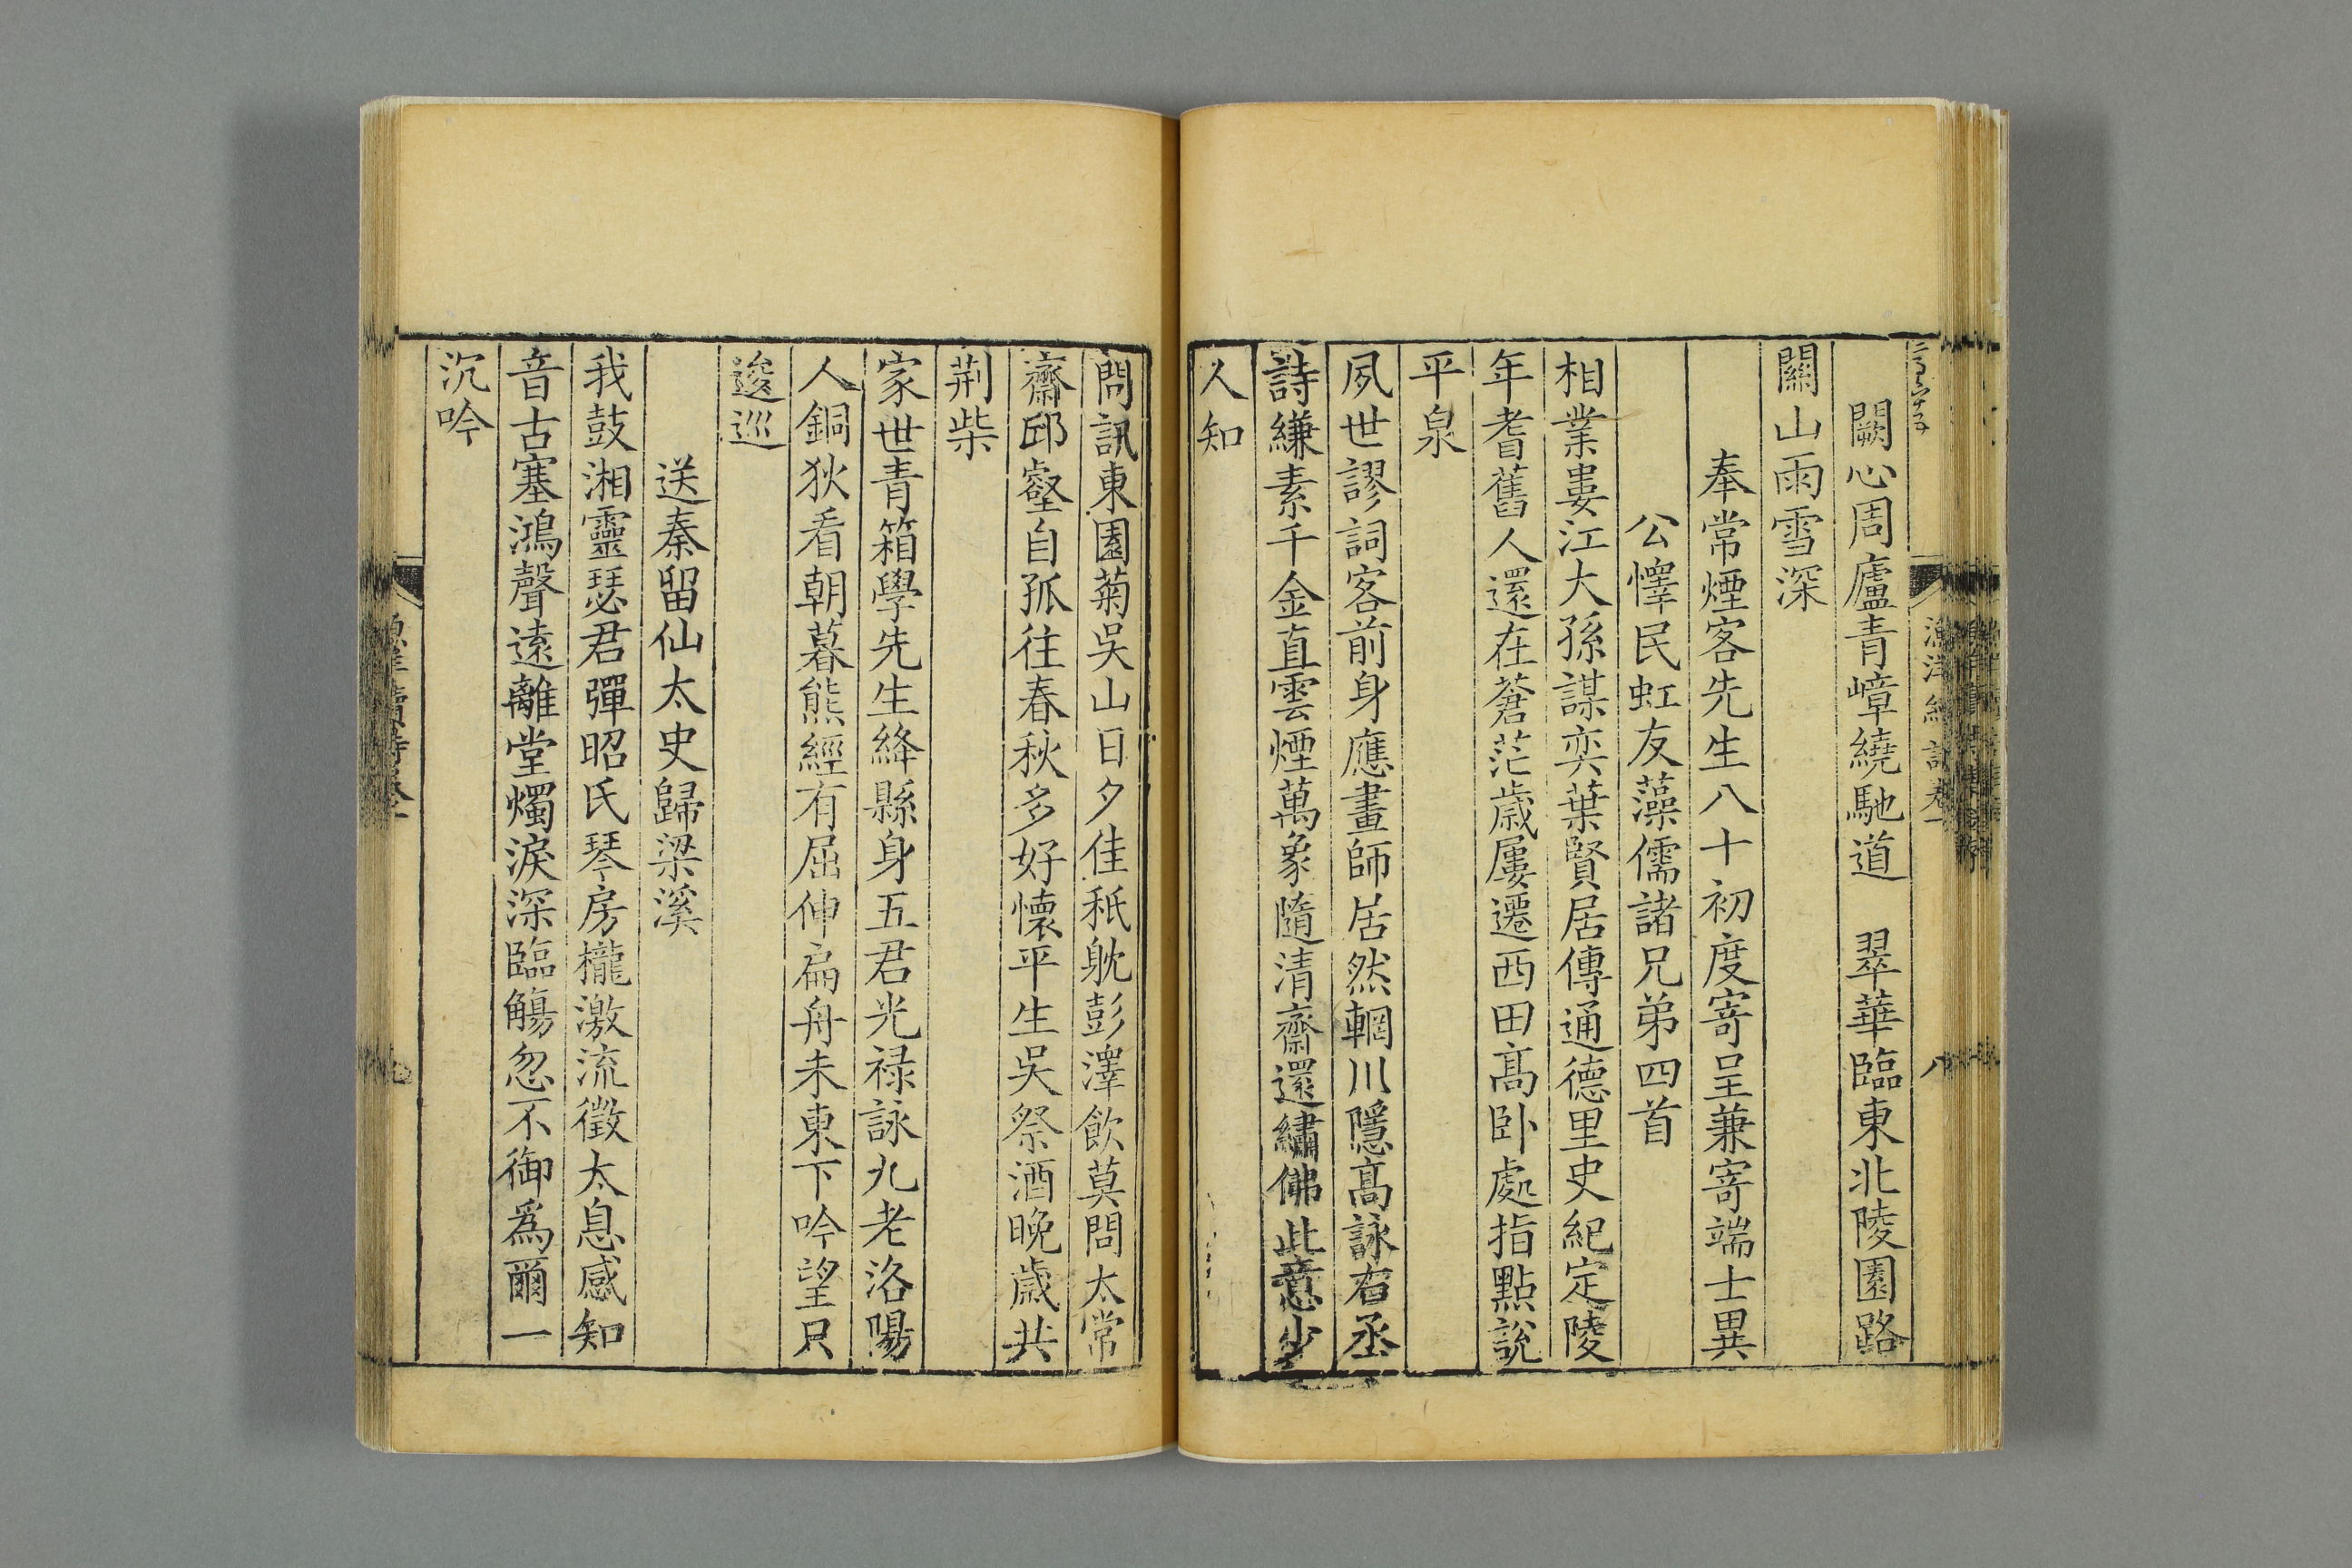 闕心周廬青嶂繞馳道　翠華臨東北陵園路
關山雨雪深
奉常煙客先生八十初度寄呈兼寄端士異
公懌民虹友藻儒諸兄弟四首
相業婁江大孫謀奕葉賢居傳通德里史紀定陵
年耆舊人還在蒼茫歲屢遷西田高卧處指點說
平泉
夙世謬詞客前身應畫師居然輞川隱高詠右丞
詩縑素千金直雲煙萬象隨清齋還繡佛此意少
人知
問訊東園菊吳山日夕佳秖躭彭澤飲莫問太常
齋邱壑自孤往春秋多好懷平生吳祭酒晚歲共
荆柴
家世青箱學先生絳縣身五君光禄詠九老洛陽
人銅狄看朝暮熊經有屈伸扁舟未東下吟望只
逡巡
送秦留仙太史歸梁溪
我鼓湘靈瑟君彈昭氏琴房櫳激流徵太息感知
音古塞鴻聲遠離堂燭淚深臨觴忽不御爲爾一
沉吟